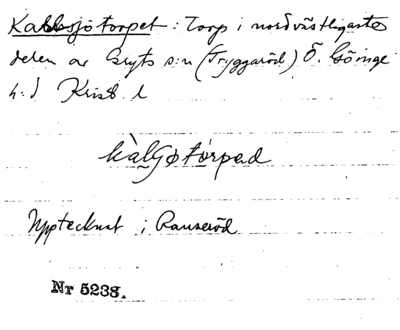 Kalvsjötorpet : Torp i nordvästligaste
delen av Gryts s:n (Tryggaröd) Ö. Göinge
h:d Krist l
Upptecknat i Rauseröd
Nr 5238.